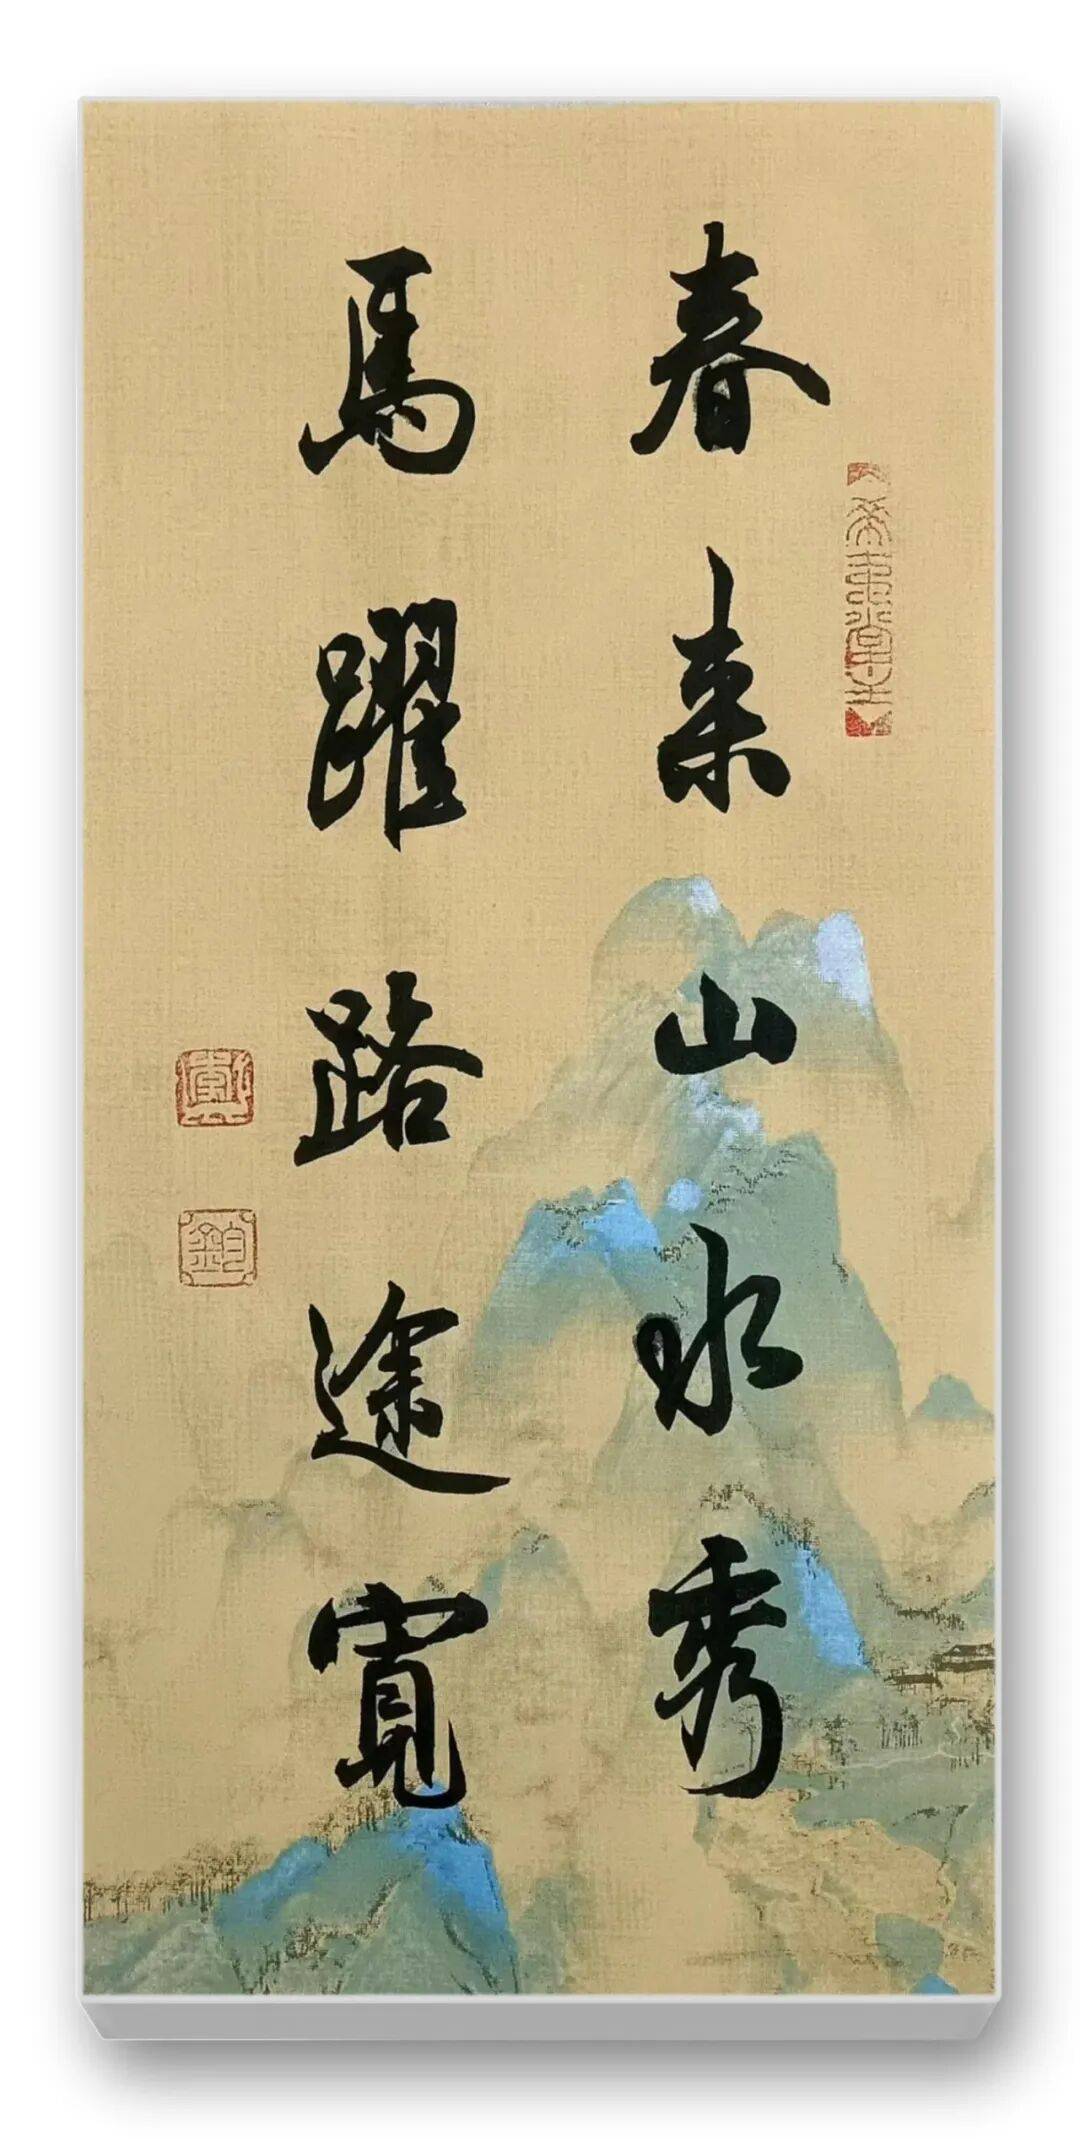 春来山水秀
馬躍路途寬